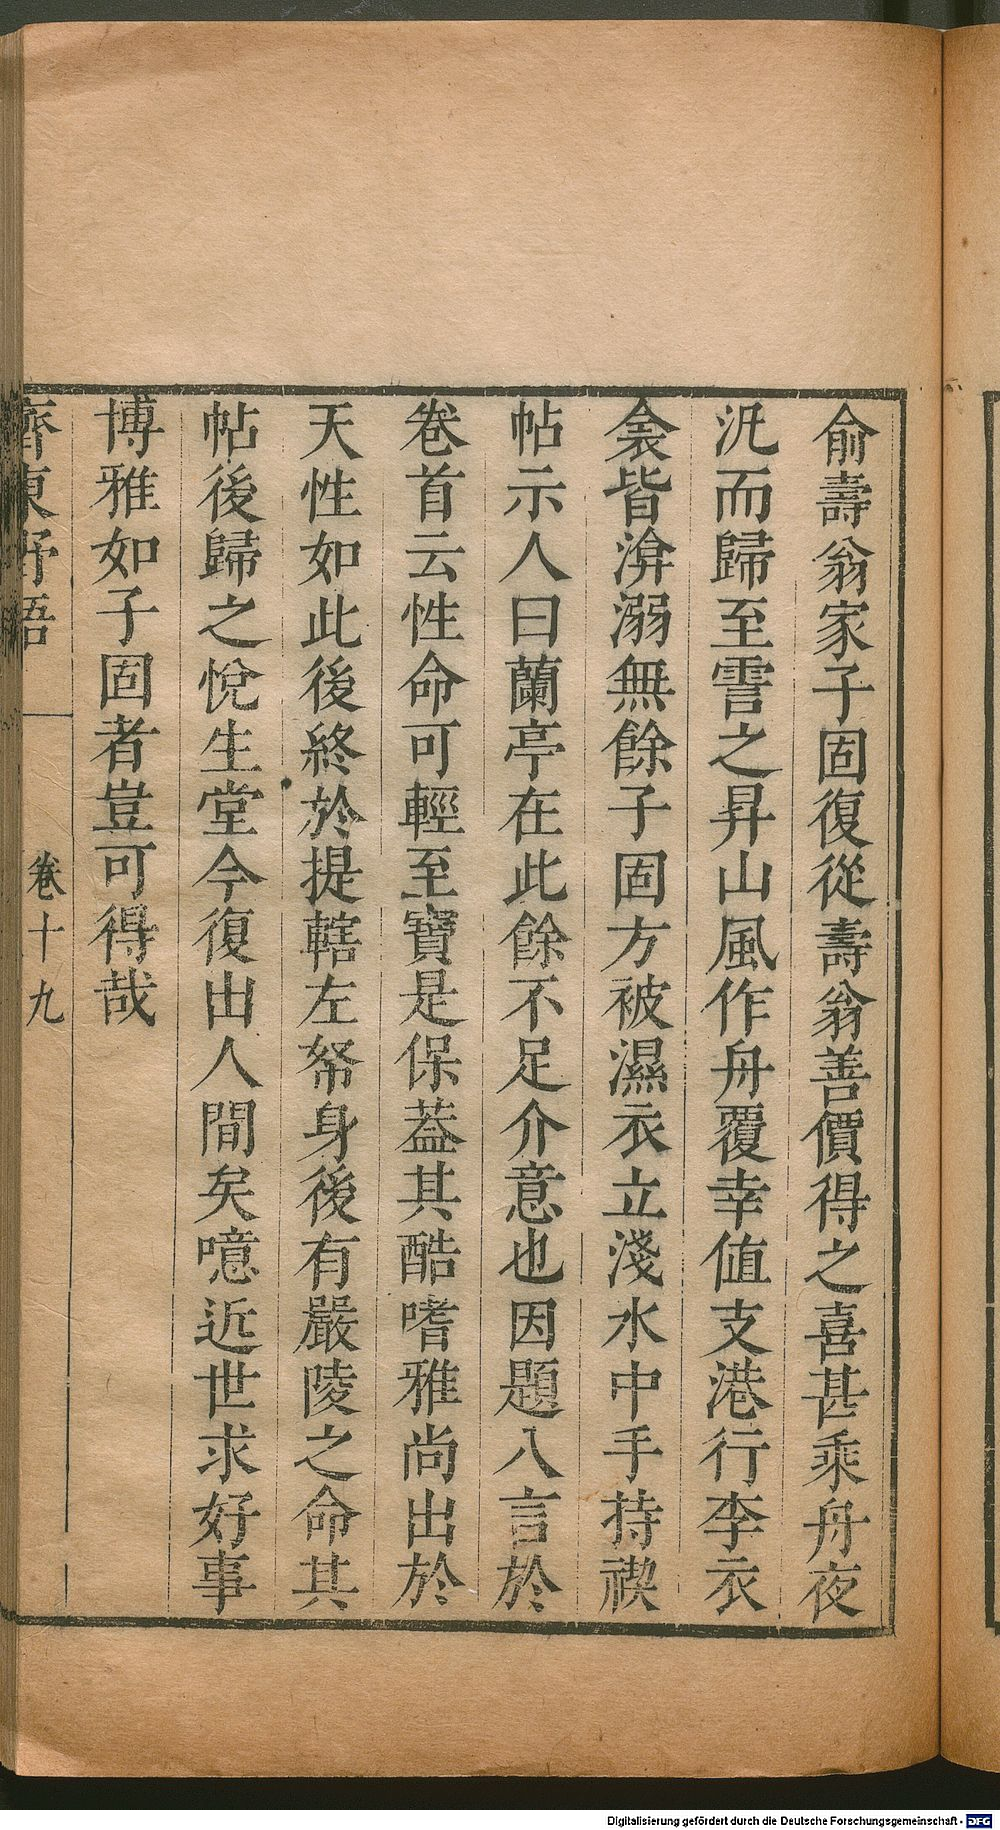 俞壽翁家子固復從壽翁善價得之喜甚乘舟夜
汎而歸至霅之昇山風作舟覆幸値支港行李衣
衾皆渰溺無餘子固方被濕衣立淺水中手持禊
帖示人曰蘭亭在此餘不足介意也因題八言於
卷首云性命可輕至寶是保葢其酷嗜雅尚出於
天性如此後終於提轄左帑身後有嚴陵之命其
帖後歸之悅生堂今復出人間矣噫近世求好事
博雅如子固者豈可得哉
齊東野語 卷十九
Digitalisierung gefördert durch die Deutsche Forschungsgemeinschaft - DFG